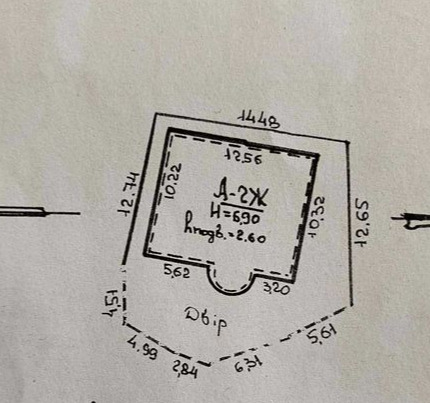 14.48
12.56
12.74
10.22
А-2Ж
H=6,90
hпідв.=2.60
10,32
12.65
5,62
3,20
4,51
Двір
4.99
2,84
6,31
5,61